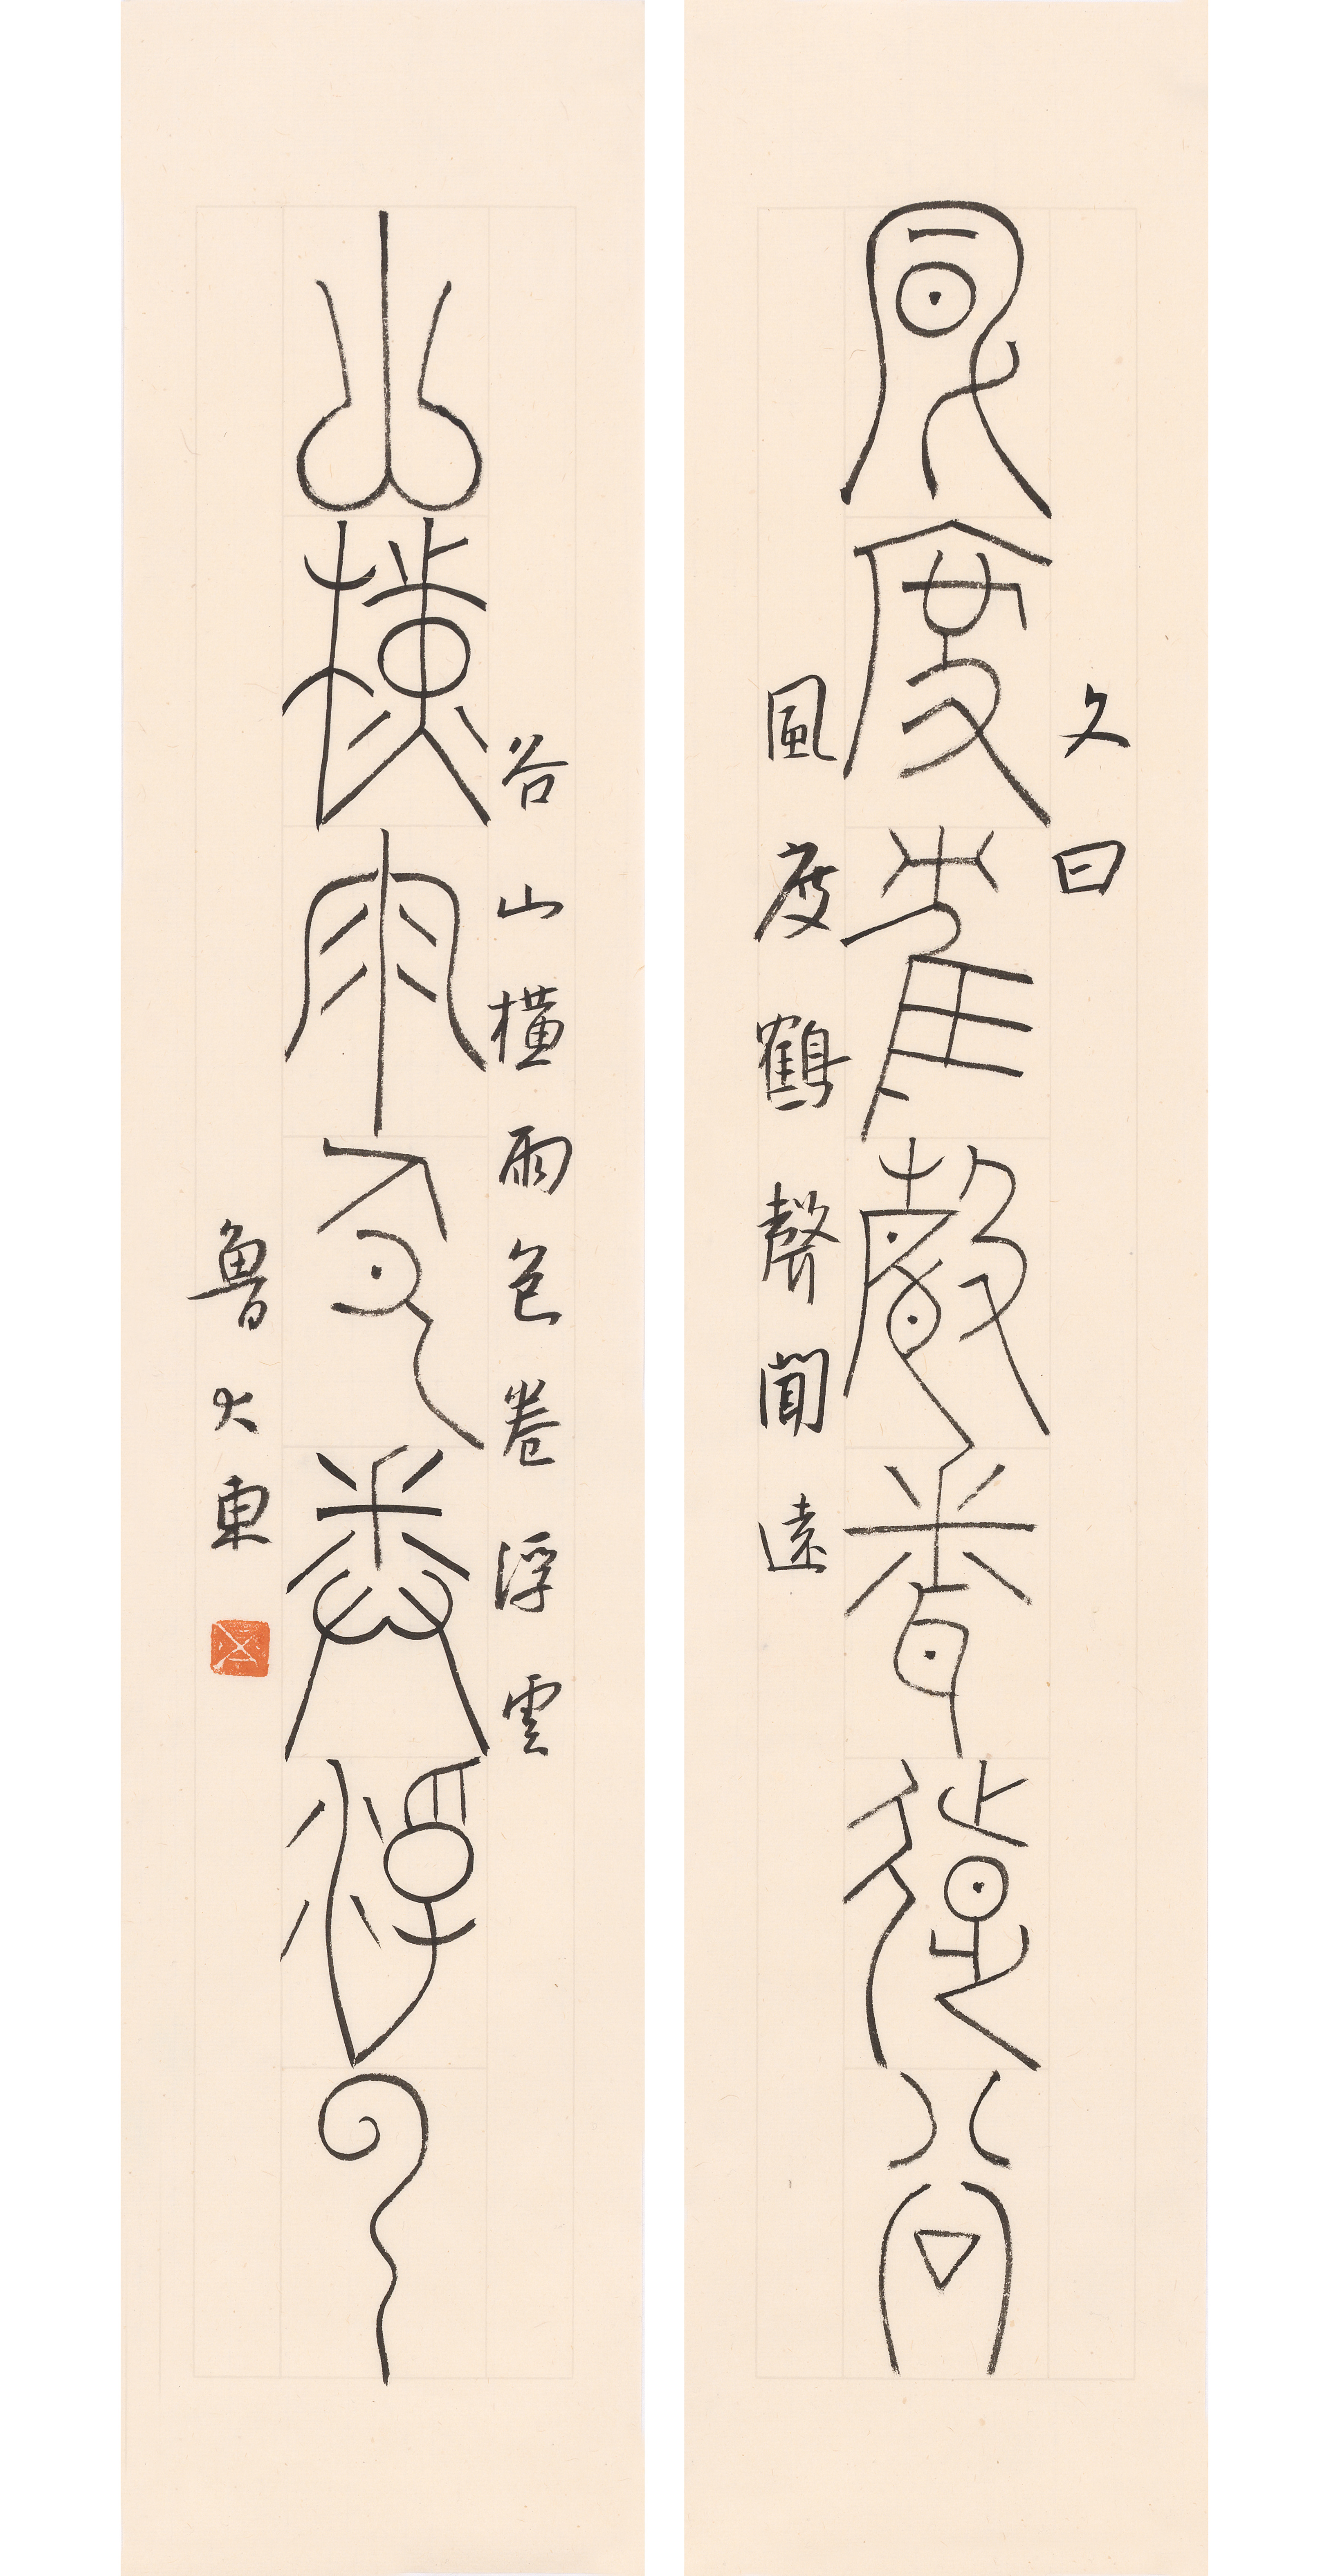 風度鶴聲聞遠谷
山橫雨色卷浮雲
文曰
風度鶴聲聞遠
谷山橫雨色卷浮雲
魯大東